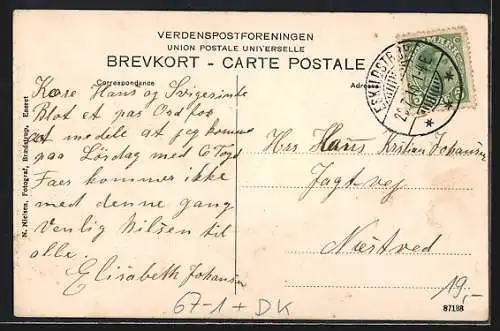 VERDENSPOSTFORENINGEN
UNION POSTALE UNIVERSELLE
BREVKORT - CARTE POSTALE
Correspondance
Kære Hans og Svigerinde
Blot et par Ord for
at medele at jeg komme
paa Lördag med 6 Tog
Faer kommer ikke
med denne gang
Venlig hilsen til
alle.
Elisabeth Johansen
Hrs Hans Kristian Johansen
Jagtvej
Næstved
N. Nielsen, Fotograf, Brøderup. Eneret
67-1 + DK
19,-
87188